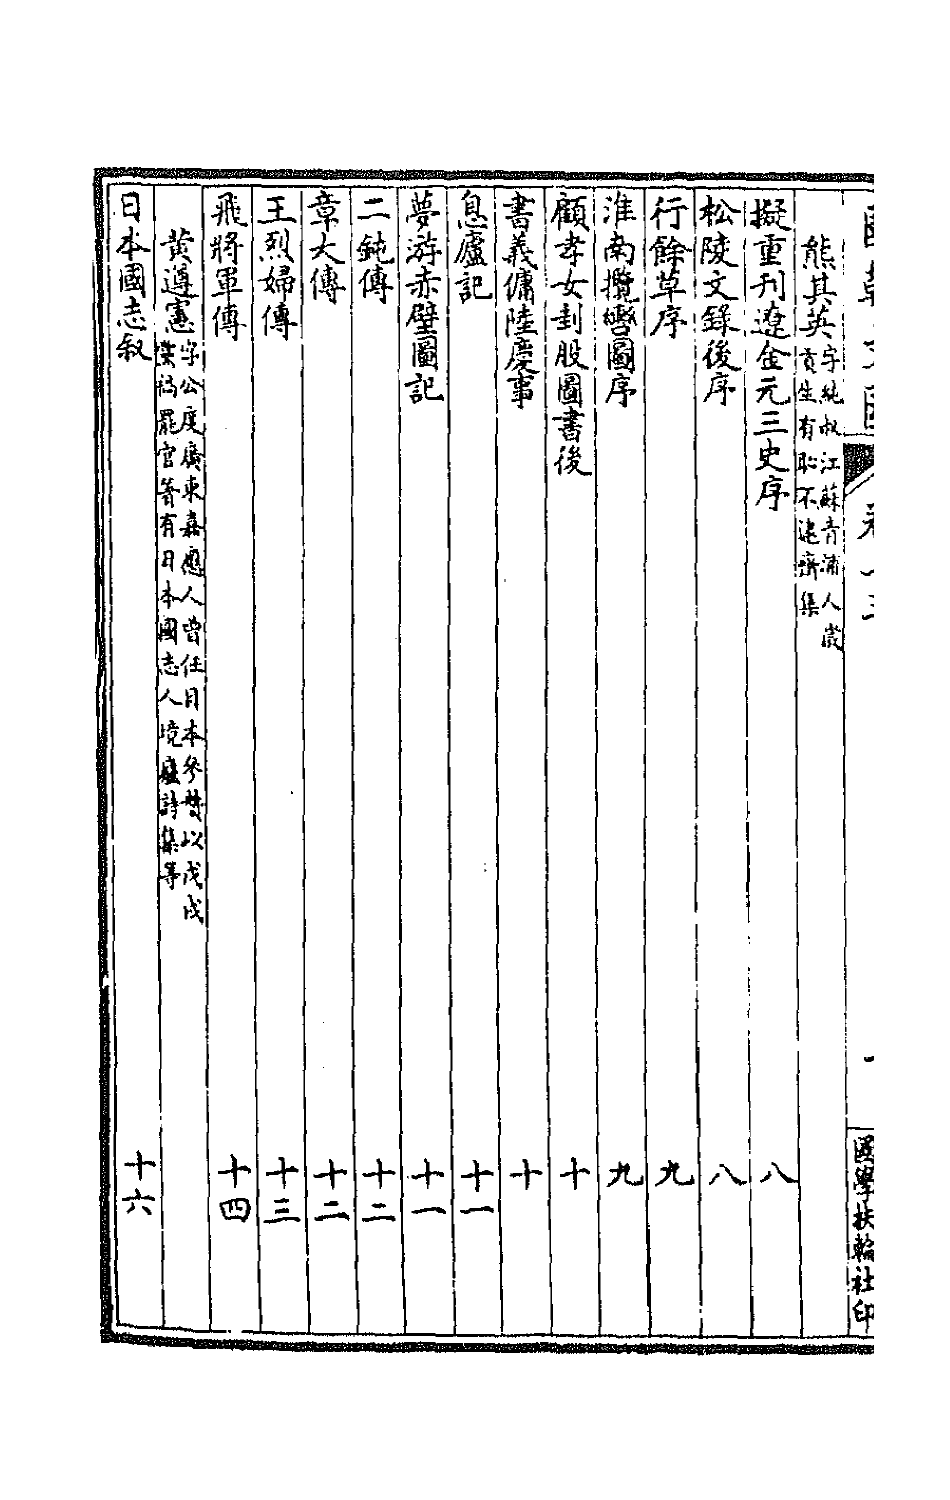 國朝文匯 卷十三 一 國學扶輪社印
熊其英 字純叔江蘇青浦人歲貢生有恥不逮齋集
擬重刊遼金元三史序 八
松陵文錄後序 八
行餘草序 九
淮南攬轡圖序 九
顧孝女刲股圖書後 十
書義傭陸慶事 十
息廬記 十一
夢游赤壁圖記 十一
二鈍傳 十二
章大傳 十二
王烈婦傳 十三
飛將軍傳 十四
黃遵憲 字公度廣東嘉應人曾任日本參贊以戊戌黨禍罷官著有日本國志人境廬詩集等
日本國志叙 十六